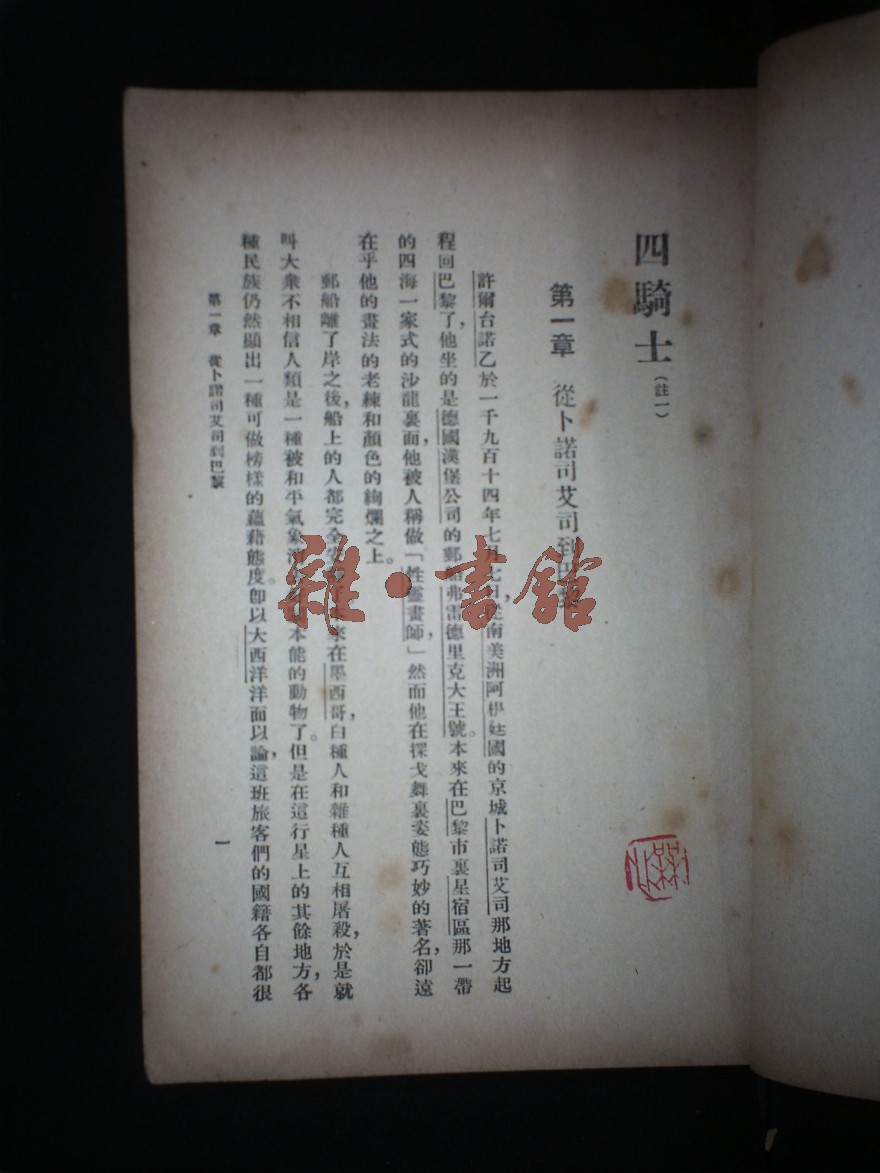 四騎士(註一)
第一章 從卜諾司艾司到巴黎
許爾台諾乙於一千九百十四年七月七日,從南美洲阿根廷國的京城卜諾司艾司那地方起
程回巴黎了,他坐的是德國漢堡公司的郵船弗雷德里克大王號。本來在巴黎市裏星宿區那一帶
的四海一家式的沙龍裏面,他被人稱做「性靈畫師,」然而他在探戈舞裏姿態巧妙的著名,卻遠
在乎他的畫法的老練和顏色的絢爛之上。
郵船離了岸之後,船上的人都完全安 來在墨西哥,白種人和雜種人互相屠殺,於是就
叫大衆不相信人類是一種被和平氣象消 本能的動物了。但是在這行星上的其餘地方,各
種民族仍然顯出一種可做榜樣的蘊藉態度。卽以大西洋洋面以論,這班旅客們的國籍各自都很
第一章 從卜諾司艾司到巴黎
一
雜·書館